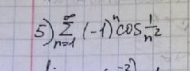 5) ∞∑n=1 (-1)^n cos 1/n²